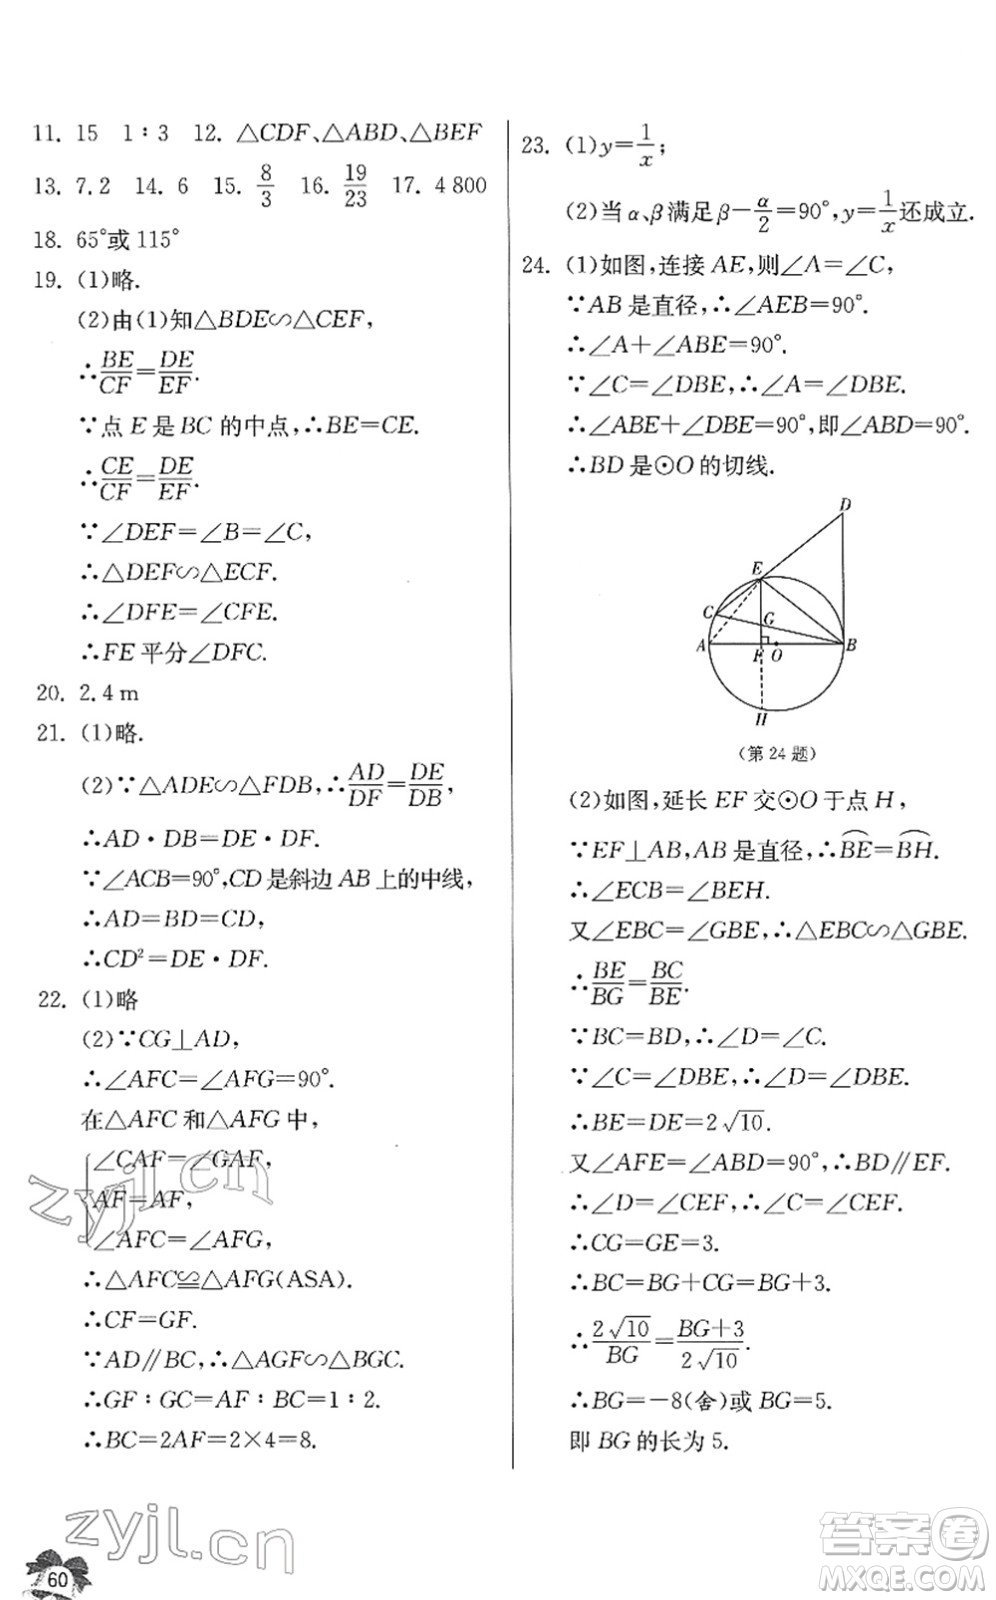 11. 15  1∶3  12. △CDF、△ABD、△BEF
13. 7.2  14. 6  15. 8/3  16. 19/23  17. 4 800
18. 65°或 115°
19. (1)略.
(2)由(1)知△BDE∽△CEF,
∴BE/CF=DE/EF.
∵点 E 是 BC 的中点,∴BE=CE.
∴CE/CF=DE/EF.
∵∠DEF=∠B=∠C,
∴△DEF∽△ECF.
∴∠DFE=∠CFE.
∴FE 平分∠DFC.
20. 2.4 m
21. (1)略.
(2)∵△ADE∽△FDB,∴AD/DF=DE/DB,
∴AD·DB=DE·DF.
∵∠ACB=90°,CD 是斜边 AB 上的中线,
∴AD=BD=CD,
∴CD²=DE·DF.
22. (1)略
(2)∵CG⊥AD,
∴∠AFC=∠AFG=90°.
在△AFC 和△AFG 中,
∠CAF=∠GAF,
AF=AF,
∠AFC=∠AFG,
∴△AFC≌△AFG(ASA).
∴CF=GF.
∵AD∥BC,∴△AGF∽△BGC.
∴GF∶GC=AF∶BC=1∶2.
∴BC=2AF=2×4=8.
23. (1)y=1/x;
(2)当 α、β 满足 β−α/2=90°,y=1/x还成立.
24. (1)如图,连接 AE,则∠A=∠C,
∵AB 是直径,∴∠AEB=90°.
∴∠A+∠ABE=90°.
∵∠C=∠DBE,∴∠A=∠DBE.
∴∠ABE+∠DBE=90°,即∠ABD=90°.
∴BD 是⊙O 的切线.
D
E
C
G
A
F
O
B
H
(第 24 题)
(2)如图,延长 EF 交⊙O 于点 H,
∵EF⊥AB,AB 是直径,∴B͡E=B͡H.
∴∠ECB=∠BEH.
又∠EBC=∠GBE,∴△EBC∽△GBE.
∴BE/BG=BC/BE.
∵BC=BD,∴∠D=∠C.
∵∠C=∠DBE,∴∠D=∠DBE.
∴BE=DE=2√10.
又∠AFE=∠ABD=90°,∴BD∥EF.
∴∠D=∠CEF,∴∠C=∠CEF.
∴CG=GE=3.
∴BC=BG+CG=BG+3.
∴2√10/BG=BG+3/2√10.
∴BG=−8(舍)或 BG=5.
即 BG 的长为 5.
zyjl.cn
zyjl.cn
60
答案圈
MXQE.COM